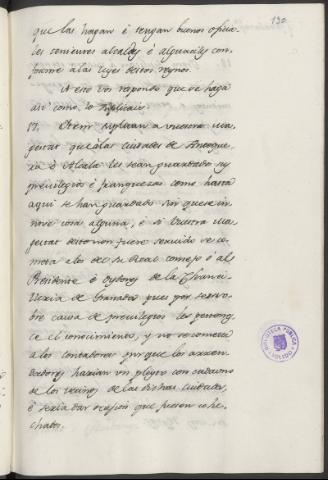 130
que las hagan é tengan buenos oficia
les tenientes alcaldes é alguaciles con
forme a las leyes destos reynos.
A esto vos respondo que se haga
asi como lo suplicais
17. Otrosi suplican a vuestra ma
gestad que á las ciudades de Anteque
ra é Alcala les sean guardados sus
previlegios é franquezas como hasta
aqui se han guardado sin que se in
nove cosa alguna, é si Vuestra Ma
gestad desto non fuere servido se co
meta a los del su Real consejo ó al
Presidente é Oydores de la Chanci
lleria de Granada pues por ser so
bre causa de previlegios les pertenes
ce el conocimiento, y no se cometa
a los contadores porque los arren
dadores harian un pleyto con cada uno
de los vecinos de las dichas ciudades,
é seria dar ocasion que fuesen cohe
chados.
BIBLIOTECA PUBLICA
TOLEDO